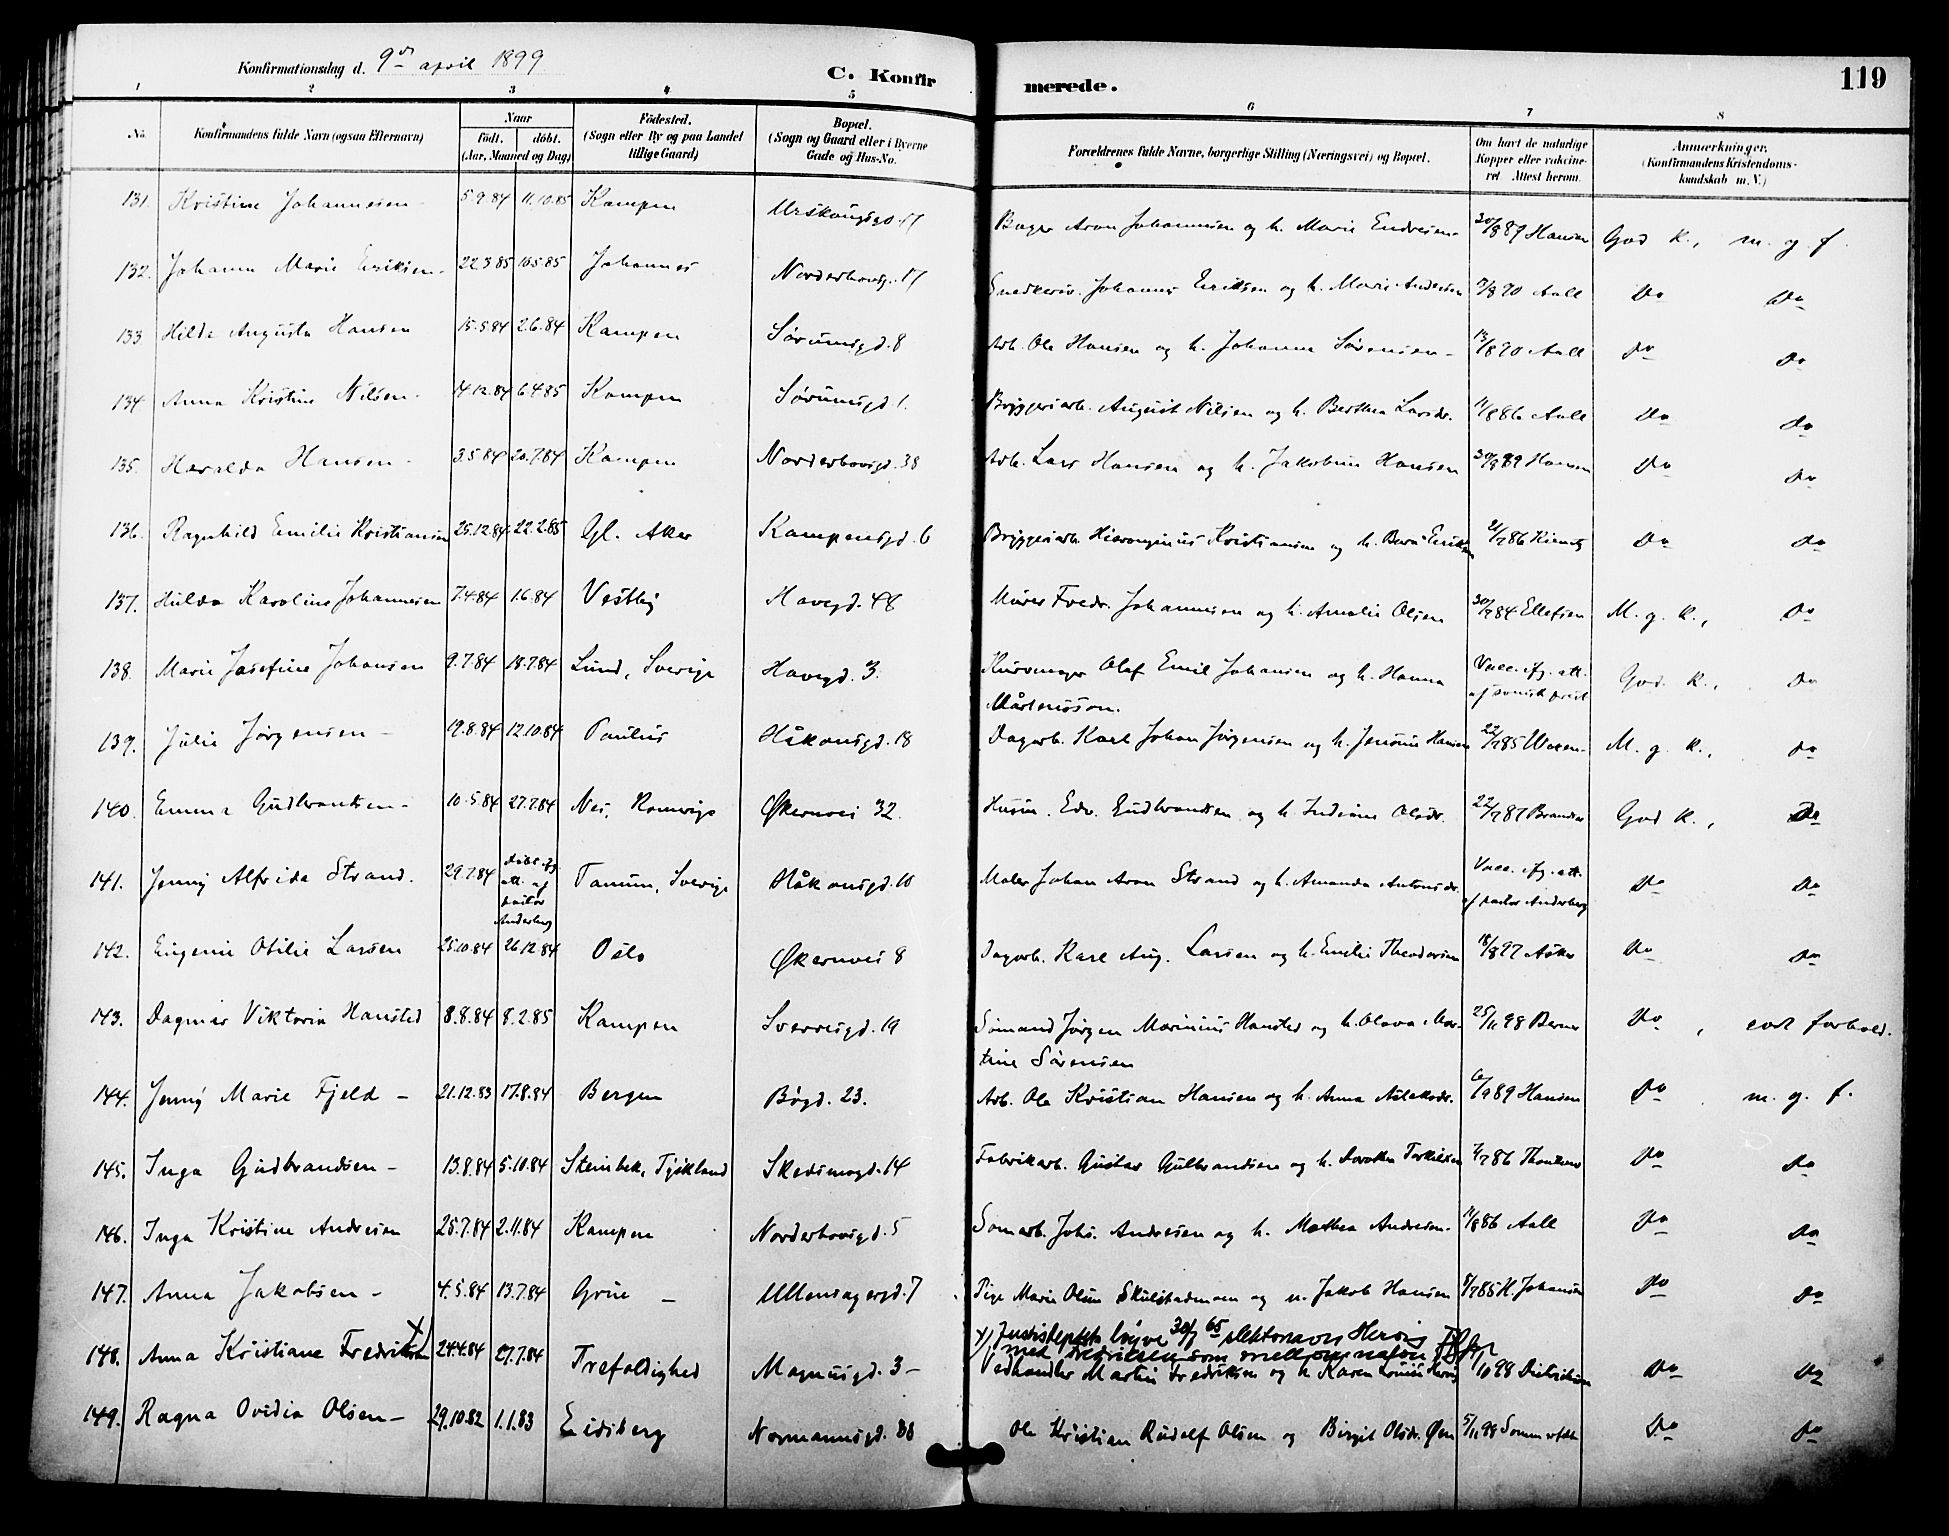 Konfirmationsdag d. 9de april 1899
C. Konfirmerede.
119
1 2 3 4 5 6 7 8
No. Konfirmandens fulde Navn (ogsaa Efternavn) Naar født. døbt. (Aar, Maaned og Dag) Fødested. (Sogn eller By og paa Landet tillige Gaard) Bopæl. (Sogn og Gaard eller i Byerne Gade og Hus-No. Forældrenes fulde Navne, borgerlige Stilling (Næringsvei) og Bopæl. Om havt de naturlige Kopper eller vaccineret Attest herom. Anmærkninger. (Konfirmandens Kristendomskundskab m. V.)
131. Kristine Johannesen - 5.9.84 11.10.85 Kampen Urskougsgd. 17 Bager Aron Johannesen og h. Marie Endresen - 30/8 89 Hansen God k., m. g. f.
132. Johanne Marie Eriksen - 22.3.85 10.5.85 Johannes Norderhovsg. 17 Snedkersv. Johannes Eriksen og h. Marie Andersen 7/8 90 Aall Do Do
133 Hilda Augusta Hansen 15.5.84 2.6.84 Kampen Sørumsgd. 8 Arb. Ole Hansen og h. Johanne Sørensen - 13/8 90 Aall Do Do
134 Anna Kristine Nilsen - 14.12.84 6.4.85 Kampen Sørumsgd. 1. Bryggeriarb. August Nilsen og h. Berthea Larsdr. 11/8 86 Aall Do Do
135. Haralda Hansen - 3.5.84 20.7.84 Kampen Norderhovsgd. 38 Arb. Lars Hansen og h. Jakobine Hansen 30/9 89 Hansen Do Do
136. Ragnhild Emilie Kristiansen 25.12.84 22.2.85 Gl. Aker Kampensgd. 6 Bryggeriarb. Hieronymus Kristiansen og h. Eriksen Do Do
137. Hulda Karoline Johannesen 7.4.84 1.6.84 Vestby Havegd. 48 Murer Fredr. Johannesen og h. Amalie Olsen 30/9 84 Ellefsen M. g. k., Do
138. Marie Josefine Johansen 9.7.84 18.7.84 Lund, Sverige Havegd. 3. Kurvmager Olaf Emil Johansen og h. Hanna Mårtensson. Vacc. ifg. att. af svensk prest God. k., Do
139. Julie Jørgensen - 19.8.84 12.10.84 Paulus Håkonsgd. 18 Dagarb. Karl Johan Jørgensen og h. Hansen 22/7 85 M. g. k., Do
140. Emma Gudbrandsen - 10.5.84 27.7.84 Nes, Romerige Økernvei 32. Edv. Gudbrandsen og h. Indiane Olsdr. 22/7 87 God k., Do
141. Jenny Alfrida Strand. 29.7.84 døbt ifg. att. af pastor Anderberg Tanum, Sverige Håkonsgd. 10 Maler Johan Aron Strand og h. Amanda Antonsdr. Vacc. ifg. att. af pastor Anderberg Do Do
142. Eugenie Otilie Larsen 25.10.84 26.12.84 Oslo Økernvei 8 Dagarb. Karl Aug. Larsen og h. Emilie Theodorsen 18/8 97 Asker Do Do
143. Dagmar Viktoria Hansted 8.8.84 8.2.85 Kampen Sverresgd. 19 Sømand Jørgen Marinius Hansted og h. Olava Martine Sørensen 25/11 98 Berner Do, godt forhold.
144. Jenny Marie Fjeld - 21.12.83 17.8.84 Bergen Bøgd. 23. Arb. Ole Kristian Hansen og h. Anna Aslaksdr. 6/9 89 Hansen Do. m. g. f.
145. Inga Gudbrandsen - 13.8.84 5.10.84 Skedsmogd. 14 Fabrikarb. Gustav Gulbrandsen og h. Dorothea Torkildsen 7/7 86 Do Do
146. Inga Kristine Andresen 25.7.84 2.11.84 Kampen Norderhovsgd. 5 Sømarb. Johs. Andresen og h. Mathea Andresen. 11/8 86 Aall Do Do
147. Anna Jakobsen - 4.5.84 13.7.84 Grue - Ullensagergd. 7 Pige Marie Olsen Skulstadmoen og u. Jakob Hansen 8/7 85 H. Johansen Do Do
148. Anna Kristiane Fredriksen x) 24.4.84 27.7.84 Trefoldighed Magnusgd. 3 - x) Justisdeptets løyve 30/7 65 slektsnavn Hervig med Fredriksen som mellomnavn
Vedhandler Martin Fredriksen og h. Karen 1/10 98 Dietrichson Do Do
149. Ragna Ovidia Olsen - 29.10.82 1.1.83 Eidsberg Normannsgd. 38 Ole Kristian Rudolf Olsen og Birgit Olsdr. Øen 5/11 98 Sommerfeldt Do Do